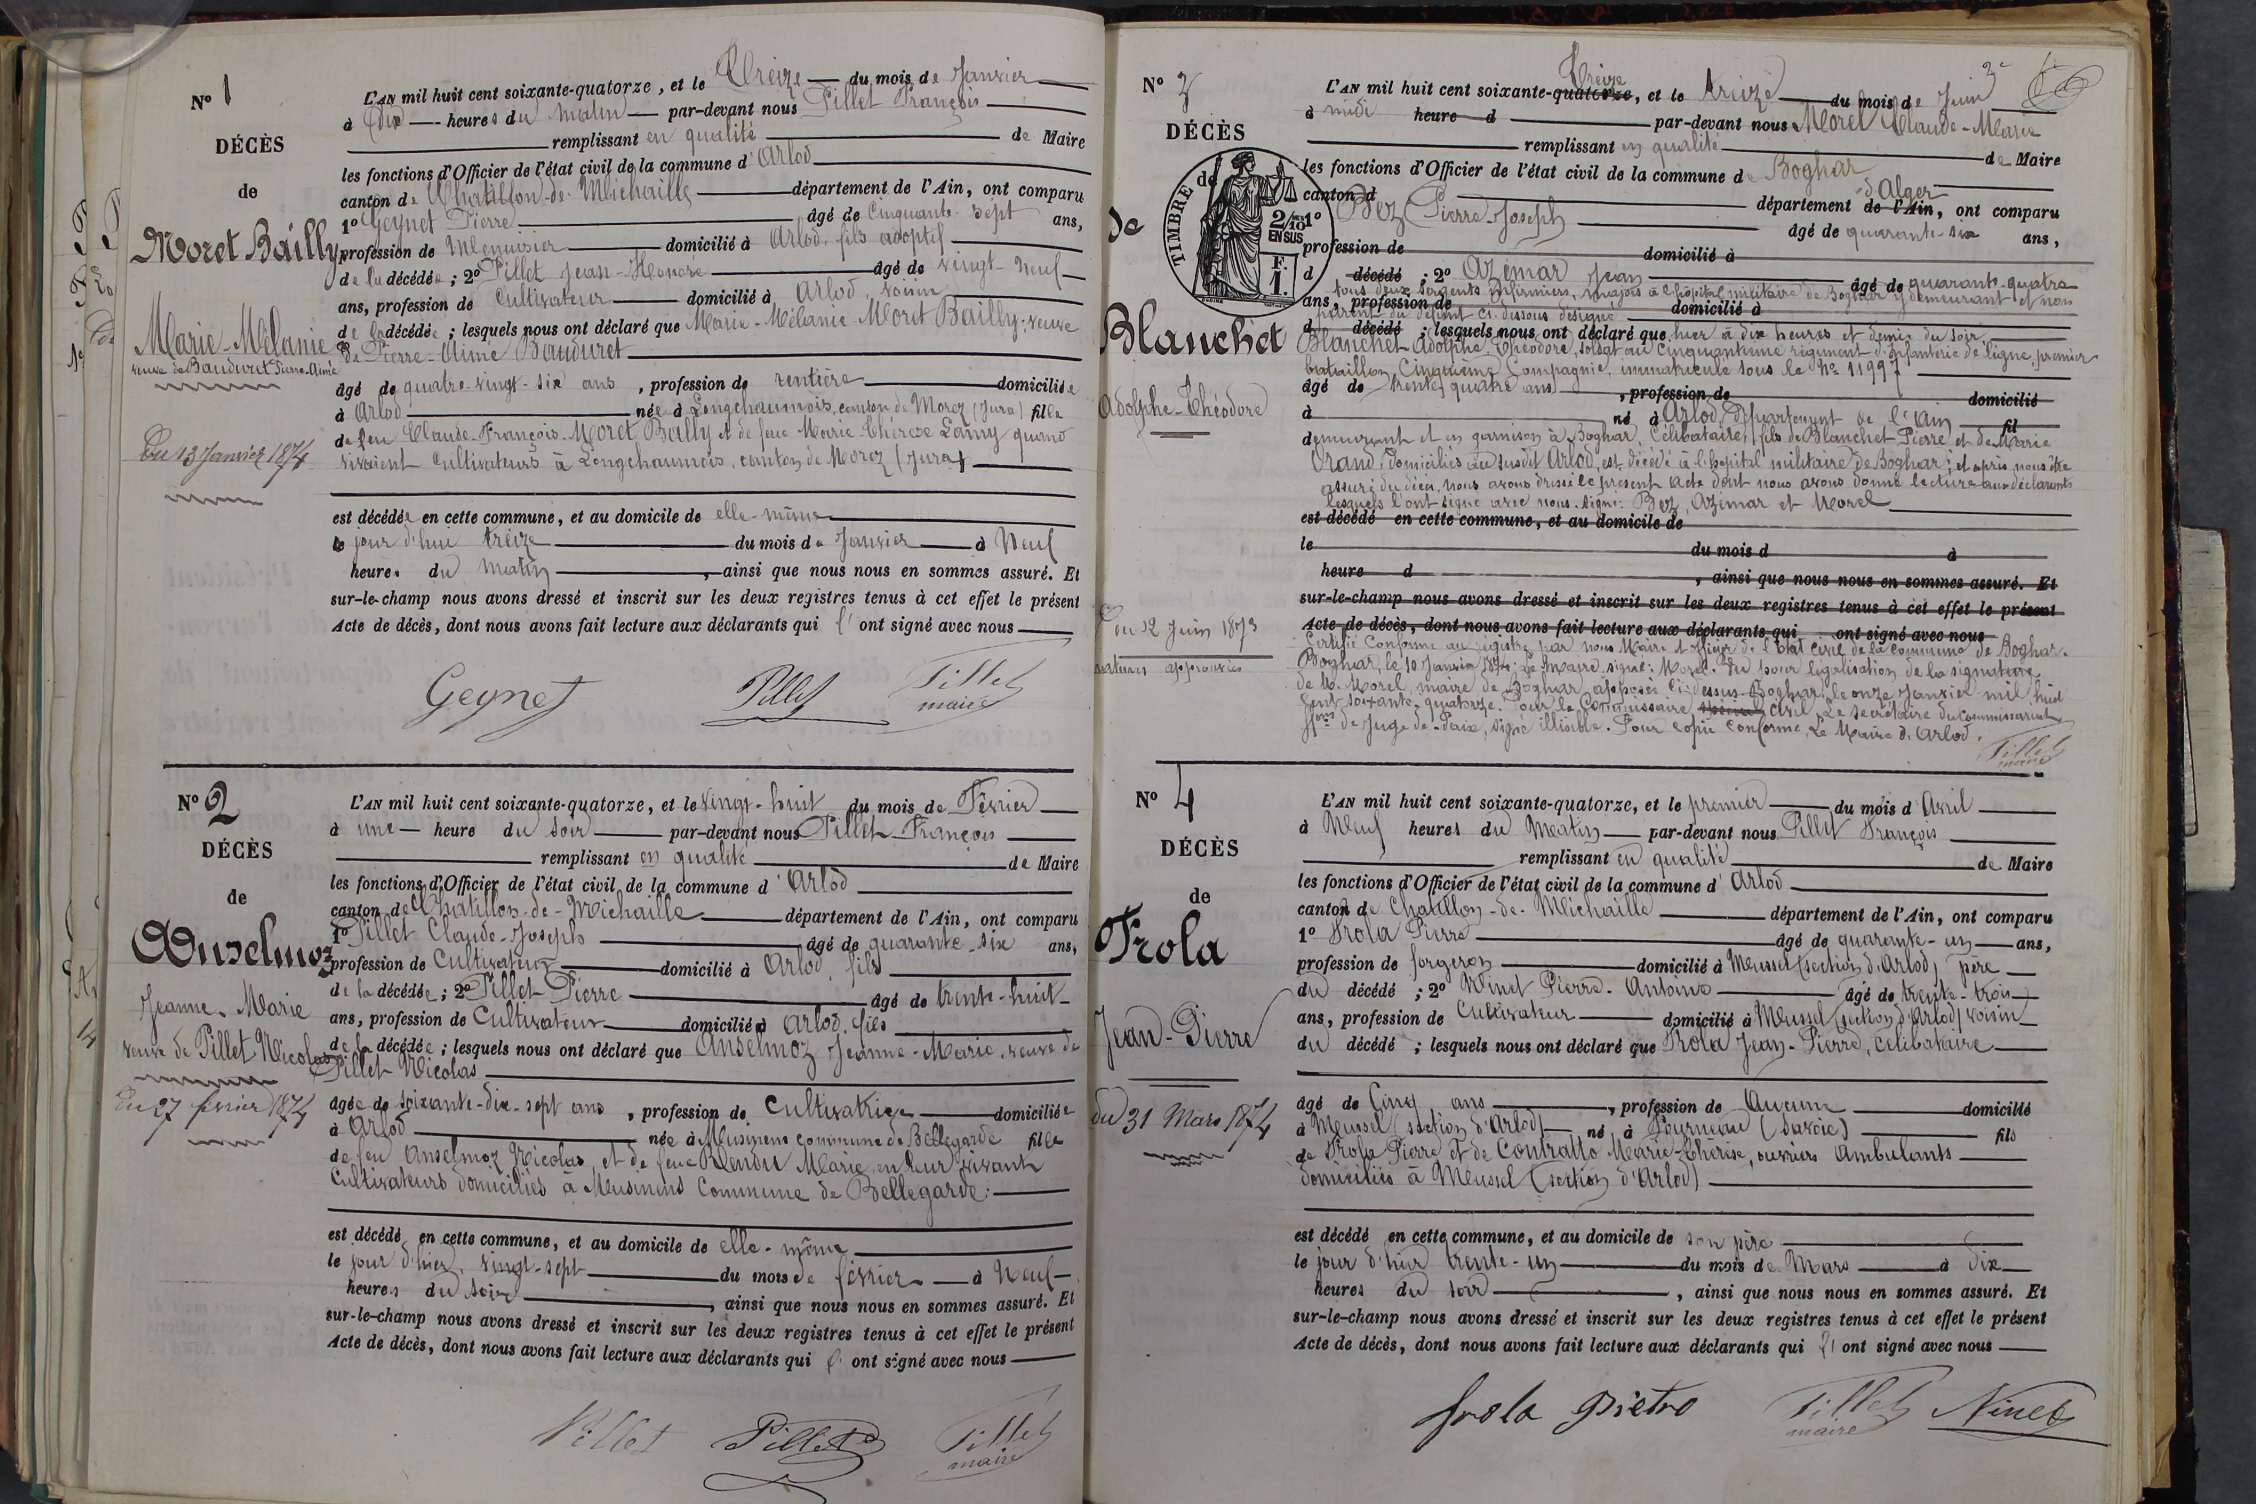 N° 1
DÉCÈS
de
Moret Bailly
Marie-Mélanie
veuve de Bauduret Pierre-Aimé
Du 13 Janvier 1874
L'AN mil huit cent soixante-quatorze, et le Treize du mois de Janvier
à Dix heures du matin par-devant nous Pillet François
remplissant en qualité de Maire
les fonctions d'Officier de l'état civil de la commune d'Arlod
canton de Chatillon-de-Michaille département de l'Ain, ont comparu
1° Geynet Pierre âgé de Cinquante-sept ans,
profession de Menuisier domicilié à Arlod, fils adoptif
de la décédée ; 2° Pillet Jean-Honoré âgé de vingt-neuf
ans, profession de Cultivateur domicilié à Arlod, voisin
de la décédée ; lesquels nous ont déclaré que Marie-Mélanie Moret Bailly, veuve
de Pierre-Aimé Bauduret
âgé de quatre-vingt-six ans, profession de rentière domiciliée
à Arlod née à Longchaumois, canton de Morez (Jura) fille
de feu Claude-François Moret Bailly et de feue Marie-Thérèse Lamy quand
vivaient Cultivateurs à Longchaumois, canton de Morez (Jura)
est décédée en cette commune, et au domicile de elle-même
le jour d'hui treize du mois de Janvier à Neuf
heures du Matin, ainsi que nous nous en sommes assuré. Et
sur-le-champ nous avons dressé et inscrit sur les deux registres tenus à cet effet le présent
Acte de décès, dont nous avons fait lecture aux déclarants qui l'ont signé avec nous
Geynet Pillet Pillet
maire
N° 2
DÉCÈS
de
Anselmoz
Jeanne-Marie
veuve de Pillet Nicolas
Du 27 février 1874
L'AN mil huit cent soixante-quatorze, et le vingt-huit du mois de Février
à une heure du soir par-devant nous Pillet François
remplissant en qualité de Maire
les fonctions d'Officier de l'état civil de la commune d'Arlod
canton de Chatillon-de-Michaille département de l'Ain, ont comparu
1° Pillet Claude-Joseph âgé de quarante-six ans,
profession de Cultivateur domicilié à Arlod, fils
de la décédée ; 2° Pillet Pierre âgé de trente-huit
ans, profession de Cultivateur domicilié à Arlod, fils
de la décédée ; lesquels nous ont déclaré que Anselmoz Jeanne-Marie, veuve de
Pillet Nicolas
âgée de soixante-dix-sept ans, profession de Cultivatrice domiciliée
à Arlod née à Musinens commune de Bellegarde fille
de feu Anselmoz Nicolas et de feue Rendu Marie en leur vivant
Cultivateurs domiciliés à Musinens Commune de Bellegarde.
est décédé en cette commune, et au domicile de elle-même
le jour d'hier, vingt-sept du mois de février à Neuf
heures du soir, ainsi que nous nous en sommes assuré. Et
sur-le-champ nous avons dressé et inscrit sur les deux registres tenus à cet effet le présent
Acte de décès, dont nous avons fait lecture aux déclarants qui l'ont signé avec nous
Pillet Pillet Pillet
maire
3
N° 3
DÉCÈS
de
TIMBRE
2/10 EN SUS
F. 1.
de
Blanchet
Adolphe-Théodore
Du 12 Juin 1873
ratures approuvées
Treize
L'AN mil huit cent soixante-quatorze, et le treize du mois de Juin
à midi heure d par-devant nous Morel Claude-Marie
remplissant en qualité de Maire
les fonctions d'Officier de l'état civil de la commune de Boghar
d'Alger
canton d département de l'Ain, ont comparu
1° Bez Pierre-Joseph âgé de quarante-six ans,
profession de domicilié à
d décédé ; 2° Azémar Jean âgé de quarante-quatre
tous deux sergents infirmiers, majors à l'hôpital militaire de Boghar y demeurant et non
ans, profession de domicilié à
parent du défunt ci-dessous désigné
d décédé ; lesquels nous ont déclaré que hier à dix heures et demie du soir,
Blanchet Adolphe-Théodore, soldat au cinquantième régiment d'infanterie de ligne, premier
bataillon, Cinquième Compagnie, immatriculé sous le N° 11997
âgé de trente quatre ans, profession de domicilié
à né à Arlod, Département de l'Ain fil
demeurant et en garnison à Boghar, Célibataire, fils de Blanchet Pierre et de Marie
Orand, Domiciliés au susdit Arlod, est décédé à l'hôpital militaire de Boghar ; et après nous être
assuré du décès, nous avons dressé le présent acte dont nous avons donné lecture aux déclarants
lesquels l'ont signé avec nous. Signé : Bez, Azémar et Morel
est décédé en cette commune, et au domicile de
le du mois d à
heure d, ainsi que nous nous en sommes assuré. Et
sur-le-champ nous avons dressé et inscrit sur les deux registres tenus à cet effet le présent
Acte de décès, dont nous avons fait lecture aux déclarants qui ont signé avec nous
Certifié Conforme au registre par nous Maire et officier de l'état civil de la commune de Boghar.
Boghar, le 10 Janvier 1874. Le Maire signé : Morel. Vu pour légalisation de la signature
de M. Morel, maire de Boghar apposée ci-dessus. Boghar, le onze Janvier mil huit
cent soixante-quatorze. Pour le Commissaire civil Le secrétaire du Commissariat
de Juge de Paix, signé illisible. Pour copie conforme, Le Maire d'Arlod.
Pillet
maire
N° 4
DÉCÈS
de
Frola
Jean-Pierre
du 31 Mars 1874
L'AN mil huit cent soixante-quatorze, et le premier du mois d'Avril
à Neuf heures du Matin par-devant nous Pillet François
remplissant en qualité de Maire
les fonctions d'Officier de l'état civil de la commune d'Arlod
canton de Chatillon-de-Michaille département de l'Ain, ont comparu
1° Frola Pierre âgé de quarante-un ans,
profession de forgeron domicilié à Meussel (section d'Arlod), père
du décédé ; 2° Ninet Pierre-Antoine âgé de trente-trois
ans, profession de Cultivateur domicilié à Meussel (section d'Arlod) voisin
du décédé ; lesquels nous ont déclaré que Frola Jean-Pierre, célibataire
âgé de Cinq ans, profession de Aucune domicilié
à Meussel (section d'Arlod) né à Fourneau (Savoie) fils
de Frola Pierre et de Contratto Marie-Thérèse, ouvriers Ambulants
domiciliés à Meussel (section d'Arlod)
est décédé en cette commune, et au domicile de son père
le jour d'hier trente-un du mois de Mars à dix
heures du soir, ainsi que nous nous en sommes assuré. Et
sur-le-champ nous avons dressé et inscrit sur les deux registres tenus à cet effet le présent
Acte de décès, dont nous avons fait lecture aux déclarants qui l'ont signé avec nous
Frola Pietro Pillet Ninet
maire